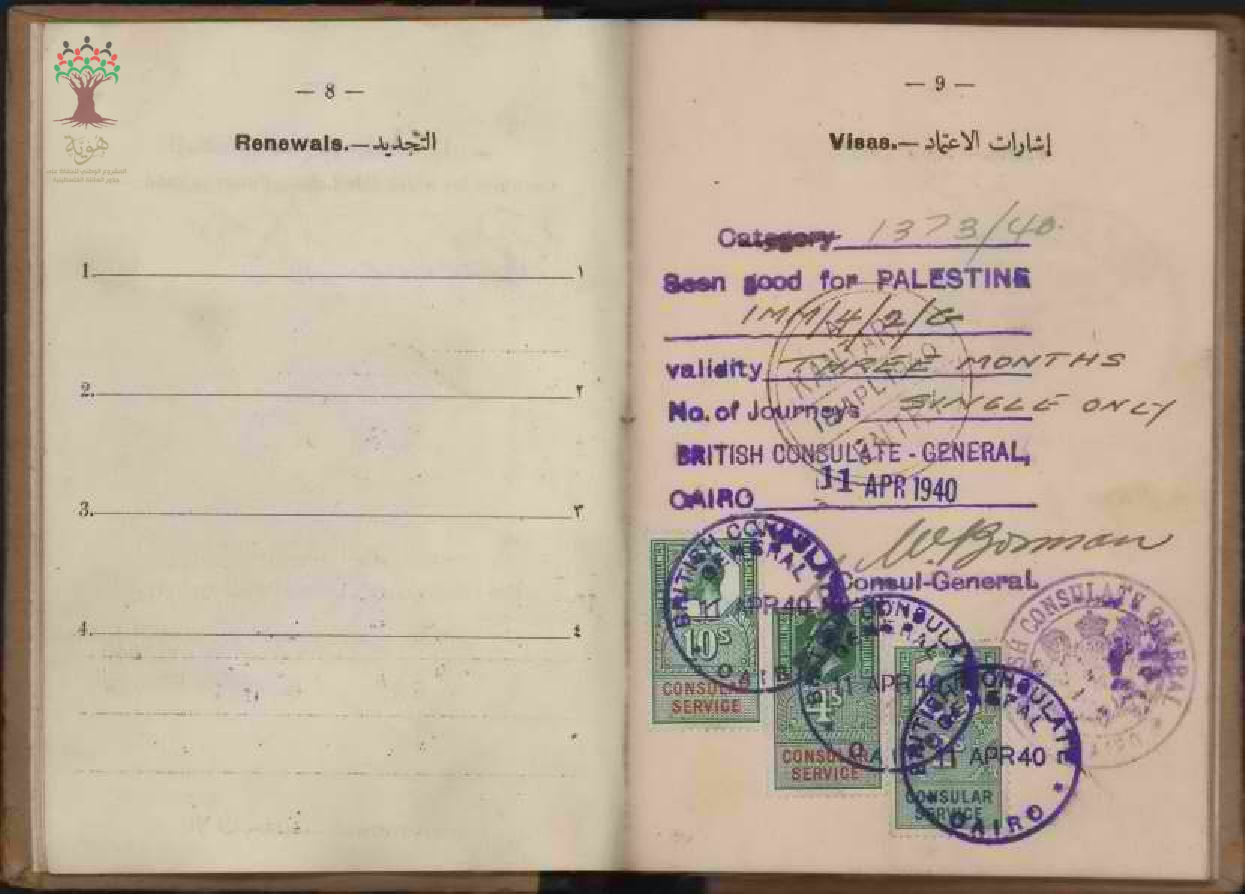 هوية
— 8 —
Renewals.—التجديد
1. ١
2. ٢
3. ٣
4. ٤
— 9 —
Visas.— إشارات الاعتماد
Category 1373/40.
Seen good for PALESTINE
IMM/4/2/G
validity THREE MONTHS
No. of Journeys SINGLE ONLY
BRITISH CONSULATE - GENERAL,
CAIRO 11 APR 1940
Consul-General.
KANTARA
18 APL 1940
ENTRY
BRITISH CONSULATE GENERAL
11 APR 40
CAIRO
10S
CONSULAR
SERVICE
BRITISH CONSULATE GENERAL
11 APR 40
CAIRO
CONSULAR
SERVICE
BRITISH CONSULATE GENERAL
11 APR 40
CAIRO
CONSULAR
SERVICE
BRITISH CONSULATE GENERAL
CAIRO